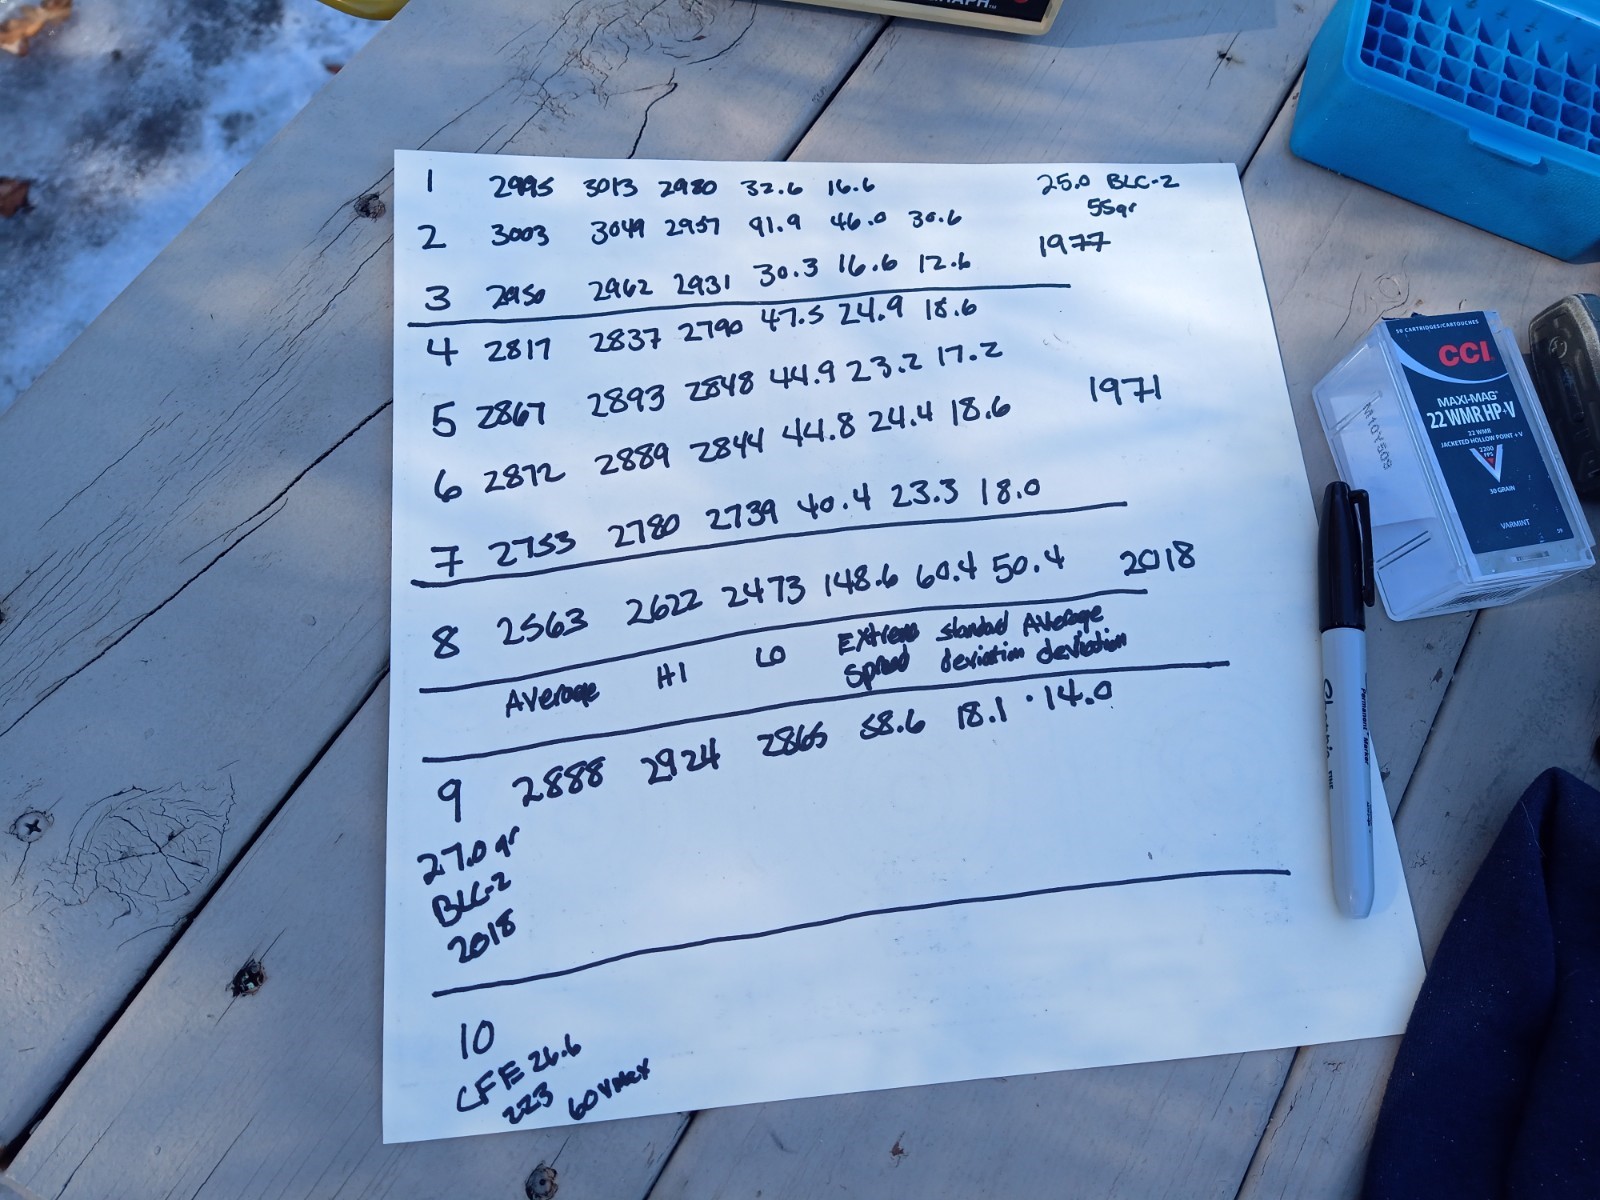 GRAPH™
1 2995 3013 2980 32.6 16.6 25.0 BLC-2
55gr
2 3003 3049 2957 91.9 46.0 30.6
1977
3 2950 2962 2931 30.3 16.6 12.6
4 2817 2837 2790 47.5 24.9 18.6
5 2867 2893 2848 44.9 23.2 17.2
1971
6 2872 2889 2844 44.8 24.4 18.6
7 2753 2780 2739 40.4 23.3 18.0
8 2563 2622 2473 148.6 60.4 50.4 2018
Average HI LO Extreme Spread standad deviation Average deviation
9 2888 2924 2865 58.6 18.1 · 14.0
27.0 gr
BLC-2
2018
10
CFE 26.6
223 60 VMax
50 CARTRIDGES/CARTOUCHES
CCI
MAXI-MAG
22 WMR HP+V
22 WMR
JACKETED HOLLOW POINT + V
2200
FPS
V
30 GRAIN
VARMINT
M10Y509
Permanent Marker